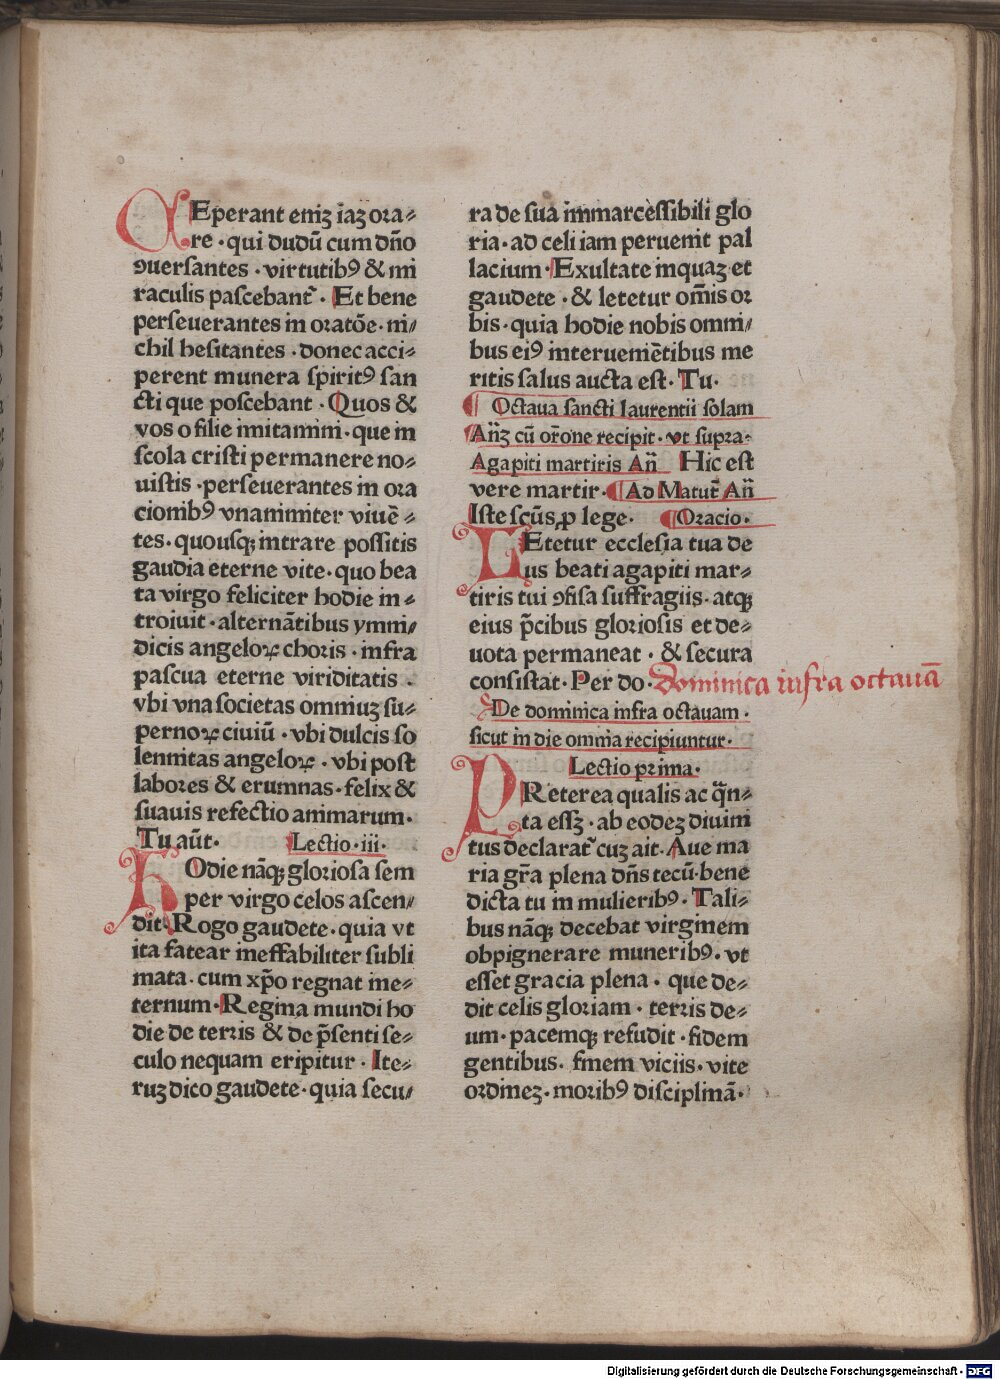 CEperant eniꝫ iaꝫ ora⸗
re · qui dudū cum dn̄o
ꝯuersantes · virtutibꝰ & mi
raculis pascebant᷑ · Et bene
perseuerantes in oratōe · ni⸗
chil hesitantes · donec acci⸗
perent munera spiritꝰ san
cti que poscebant · Quos &
vos o filie imitamini · que in
scola cristi permanere no⸗
uistis · perseuerantes in ora
cionibꝰ vnanimiter viuē⸗
tes · quousqꝫ intrare possitis
gaudia eterne vite · quo bea
ta virgo feliciter hodie in⸗
troiuit · alternātibus ymni⸗
dicis angeloꝝ choris · infra
pascua eterne viriditatis ·
vbi vna societas omniuꝫ su⸗
pernoꝝ ciuiū · vbi dulcis so
lennitas angeloꝝ · vbi post
labores & erumnas · felix &
suauis refectio animarum ·
Tu aūt · Lectio · iii ·
HOdie nāqꝫ gloriosa sem
per virgo celos ascen⸗
dit · Rogo gaudete · quia vt
ita fatear ineffabiliter subli
mata · cum xp̄o regnat ine⸗
ternum · Regina mundi ho
die de terris & de p̄senti se⸗
culo nequam eripitur · Ite⸗
ruꝫ dico gaudete · quia secu⸗
ra de sua immarcessibili glo
ria · ad celi iam peruenit pal
lacium · Exultate inquaꝫ et
gaudete · & letetur om̄is or
bis · quia hodie nobis omni⸗
bus eiꝰ interueniētibus me
ritis salus aucta est · Tu ·
¶ Octaua sancti laurentii solam
An̄ꝫ cū or̄one recipit · vt supra ·
Agapiti martiris An̄ Hic est
vere martir · ¶ Ad Matut᷑ An̄
Iste sc̄us ꝓ lege · ¶ Oracio ·
LEtetur ecclesia tua de
us beati agapiti mar⸗
tiris tui ꝯfisa suffragiis · atqꝫ
eius p̄cibus gloriosis et de⸗
uota permaneat · & secura
consistat · Per do · Dominica infra octauā
De dominica infra octauam ·
sicut in die omnia recipiuntur ·
Lectio prima ·
PReterea qualis ac qͣn⸗
ta essꝫ · ab eodeꝫ diuini
tus declarat᷑ cuꝫ ait · Aue ma
ria gr̄a plena dn̄s tecū · bene
dicta tu in mulieribꝰ · Tali⸗
bus nāqꝫ decebat virginem
obpignerare muneribꝰ · vt
esset gracia plena · que de⸗
dit celis gloriam · terris de⸗
um · pacemqꝫ refudit · fidem
gentibus · finem viciis · vite
ordineꝫ · moribꝰ disciplinā ·
Digitalisierung gefördert durch die Deutsche Forschungsgemeinschaft - DFG